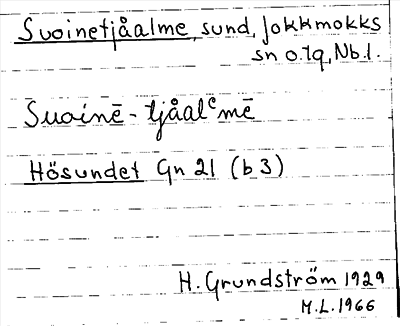 Suoinetjåalme, sund, Jokkmokks
sn o. tg, Nb. l.
Suoinē-tjåalᵉmē
Hösundet Gn 21 (b3)
H. Grundström 1929
M.L. 1966